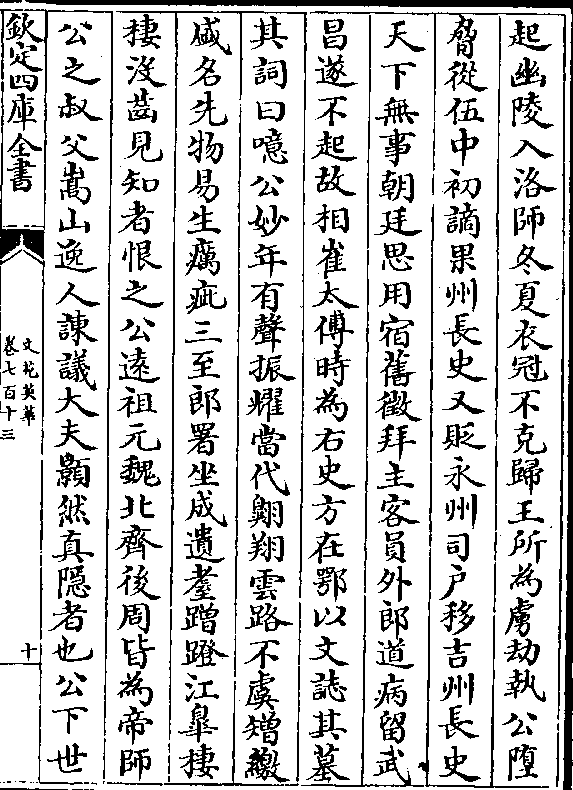 起幽陵入洛師冬夏衣冠不克歸王所為虜劫執公墮
脅從伍中初謫果州長史又貶永州司户移吉州長史
天下無事朝廷思用宿舊徵拜主客員外郎道病留武
昌遂不起故相崔太傅時為右史方在鄂以文誌其墓
其詞曰噫公妙年有聲振耀當代翺翔雲路不虞矰繳
盛名先物易生癘疵三至郎署坐成遺耋蹭蹬江臯棲
棲没齒見知者恨之公遠祖元魏北齊後周皆為帝師
公之叔父嵩山逸人諫議大夫顥然真隠者也公下世
欽定四庫全書
文苑英華
卷七百十三
十